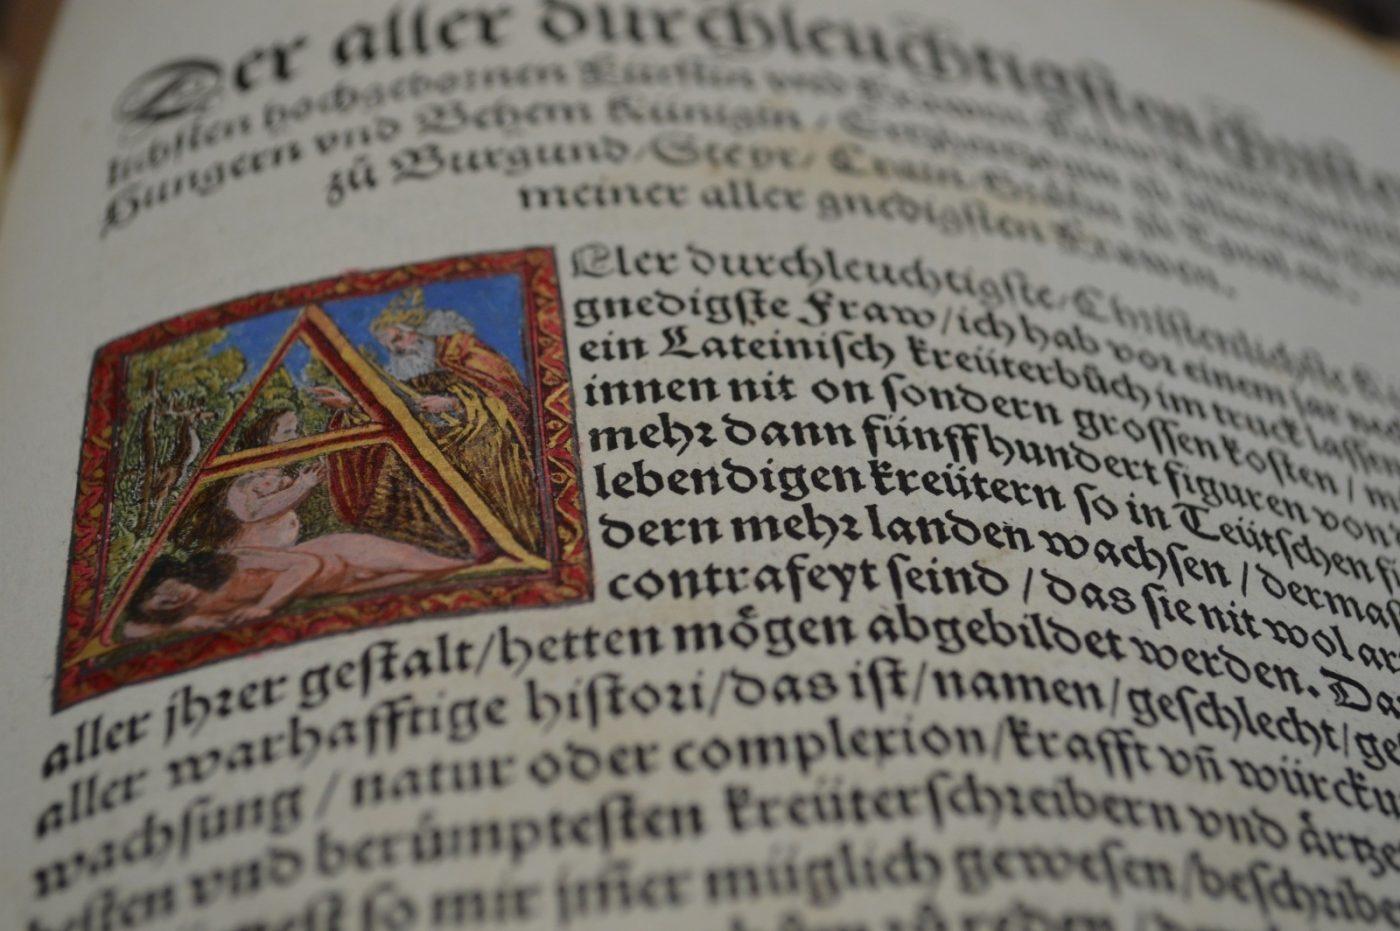 Der aller durchleuchtigſten Chriſte
lichſten hochgebornen Fürſtin vnd Frawen
Hungern vnd Behem Künigin / Ertzhertzogin zů
zů Burgund / Steyr / Crain / Gräfin zů Tyrol, etc.
meiner aller gnedigſten Frawen.
ALler durchleuchtigſte / Chriſtenlichſte
gnedigſte Fraw / ich hab vor einem jar
ein Lateiniſch kreüterbůch im truck laſſen
innen nit on ſondern groſſen koſten /
mehr dann fünffhundert figuren von
lebendigen kreütern ſo in Teütſchen
dern mehr landen wachſen / dermaſ
contrafeyt ſeind / das ſie nit wol
aller jhrer geſtalt / hetten mögen abgebildet werden. Da
aller warhafftige hiſtori / das iſt / namen / geſchlecht /
wachſung / natur oder complexion / krafft vñ würcku
beſten vnd berůmpteſten kreüterſchreibern vnd ärtze
ſo mir jm̃er müglich geweſen / beſchribe
zů reden /